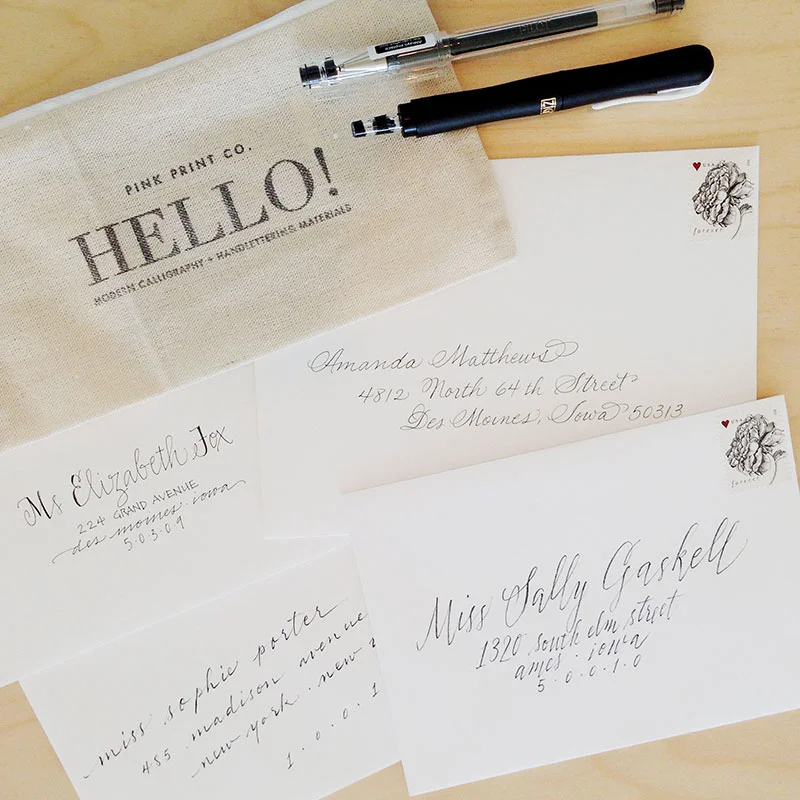 PINK PRINT CO.
HELLO!
MODERN CALLIGRAPHY + HANDLETTERING MATERIALS
PILOT
ZIG
USA
forever
Amanda Matthews
4812 North 64th Street
Des Moines, Iowa 50313
USA
forever
Ms Elizabeth Fox
224 GRAND AVENUE
des moines · iowa
5·0·3·0·9
Miss Sally Gaskell
1320 south elm street
ames · iowa
5·0·0·1·0
miss sophie porter
455 madison avenue
new york · new
1·0·0·1